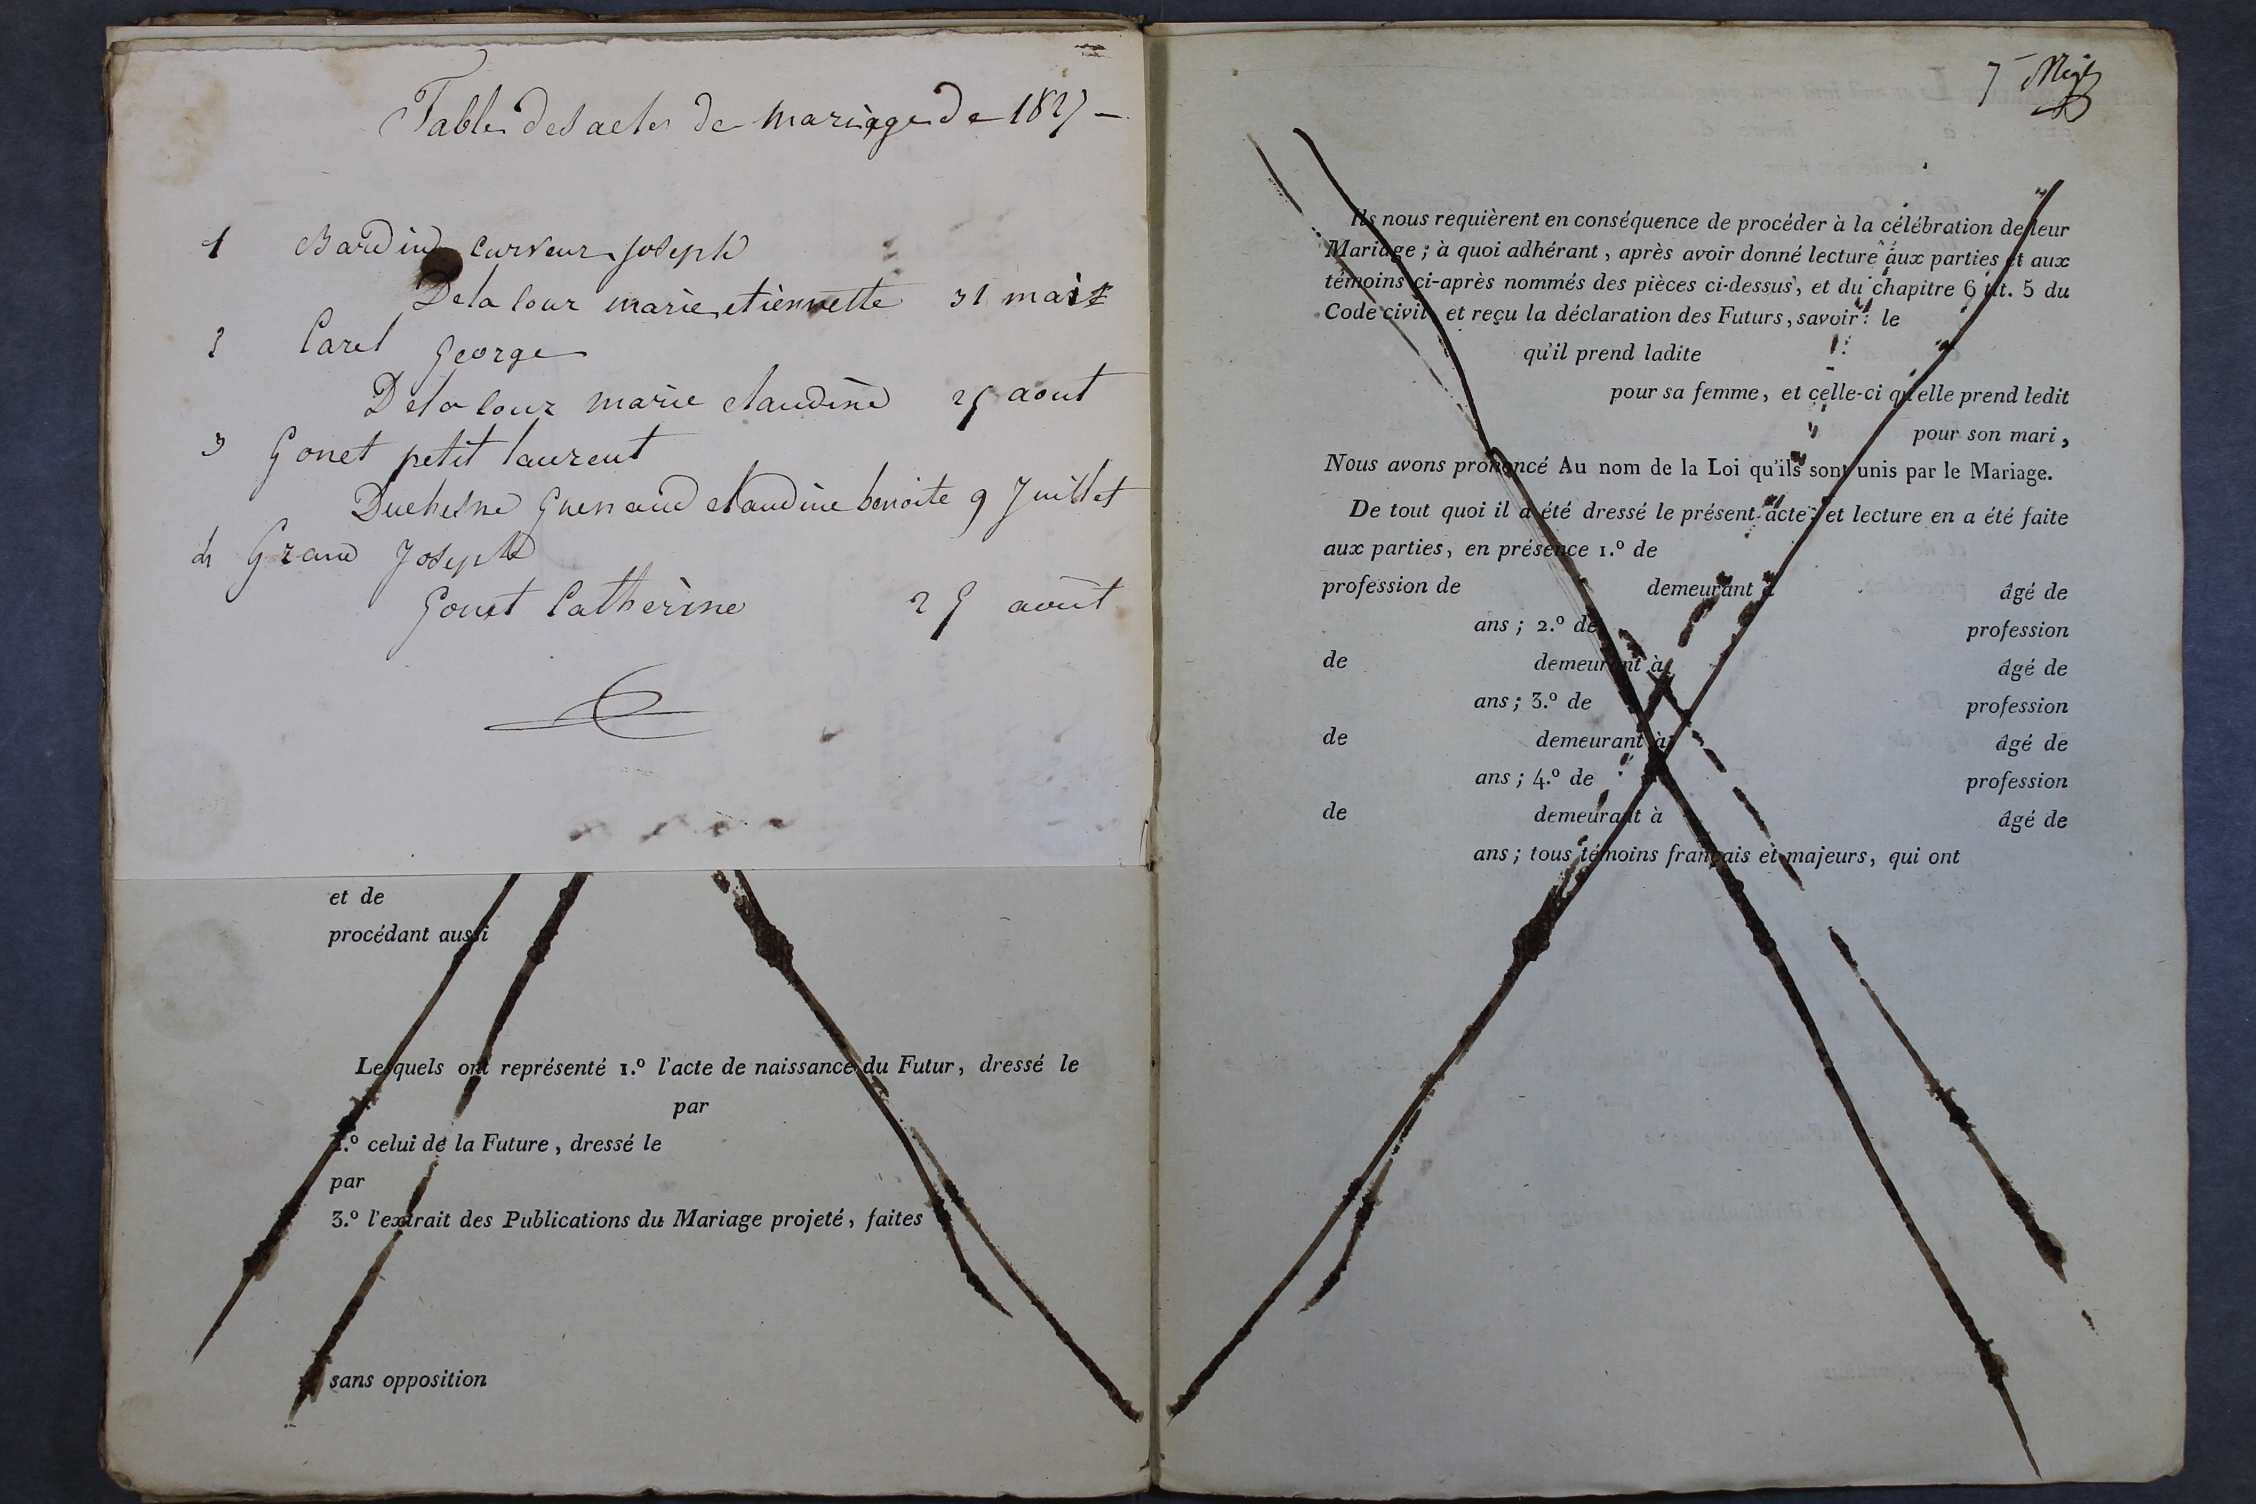 Table des actes de mariage de 1827 –
1 Bardin Curveur Joseph
Delalour marie etiennette 31 mai
2 Carel George
Delalour marie claudine 25 aout
3 Gonet petit laurent
Duchesne Guenaud claudine benoite 9 Juillet
4 Grand Joseph
Gonet Catherine 25 août
et de
procédant aussi
Lesquels ont représenté 1.º l'acte de naissance du Futur, dressé le
par
2.º celui de la Future, dressé le
par
3.º l'extrait des Publications du Mariage projeté, faites
sans opposition
7
Ils nous requièrent en conséquence de procéder à la célébration de leur
Mariage ; à quoi adhérant, après avoir donné lecture aux parties et aux
témoins ci-après nommés des pièces ci-dessus, et du chapitre 6 tit. 5 du
Code civil, et reçu la déclaration des Futurs, savoir : le
qu'il prend ladite
pour sa femme, et celle-ci qu'elle prend ledit
pour son mari,
Nous avons prononcé Au nom de la Loi qu'ils sont unis par le Mariage.
De tout quoi il a été dressé le présent acte ; et lecture en a été faite
aux parties, en présence 1.º de
profession de demeurant à âgé de
ans ; 2.º de profession
de demeurant à âgé de
ans ; 3.º de profession
de demeurant à âgé de
ans ; 4.º de profession
de demeurant à âgé de
ans ; tous témoins français et majeurs, qui ont